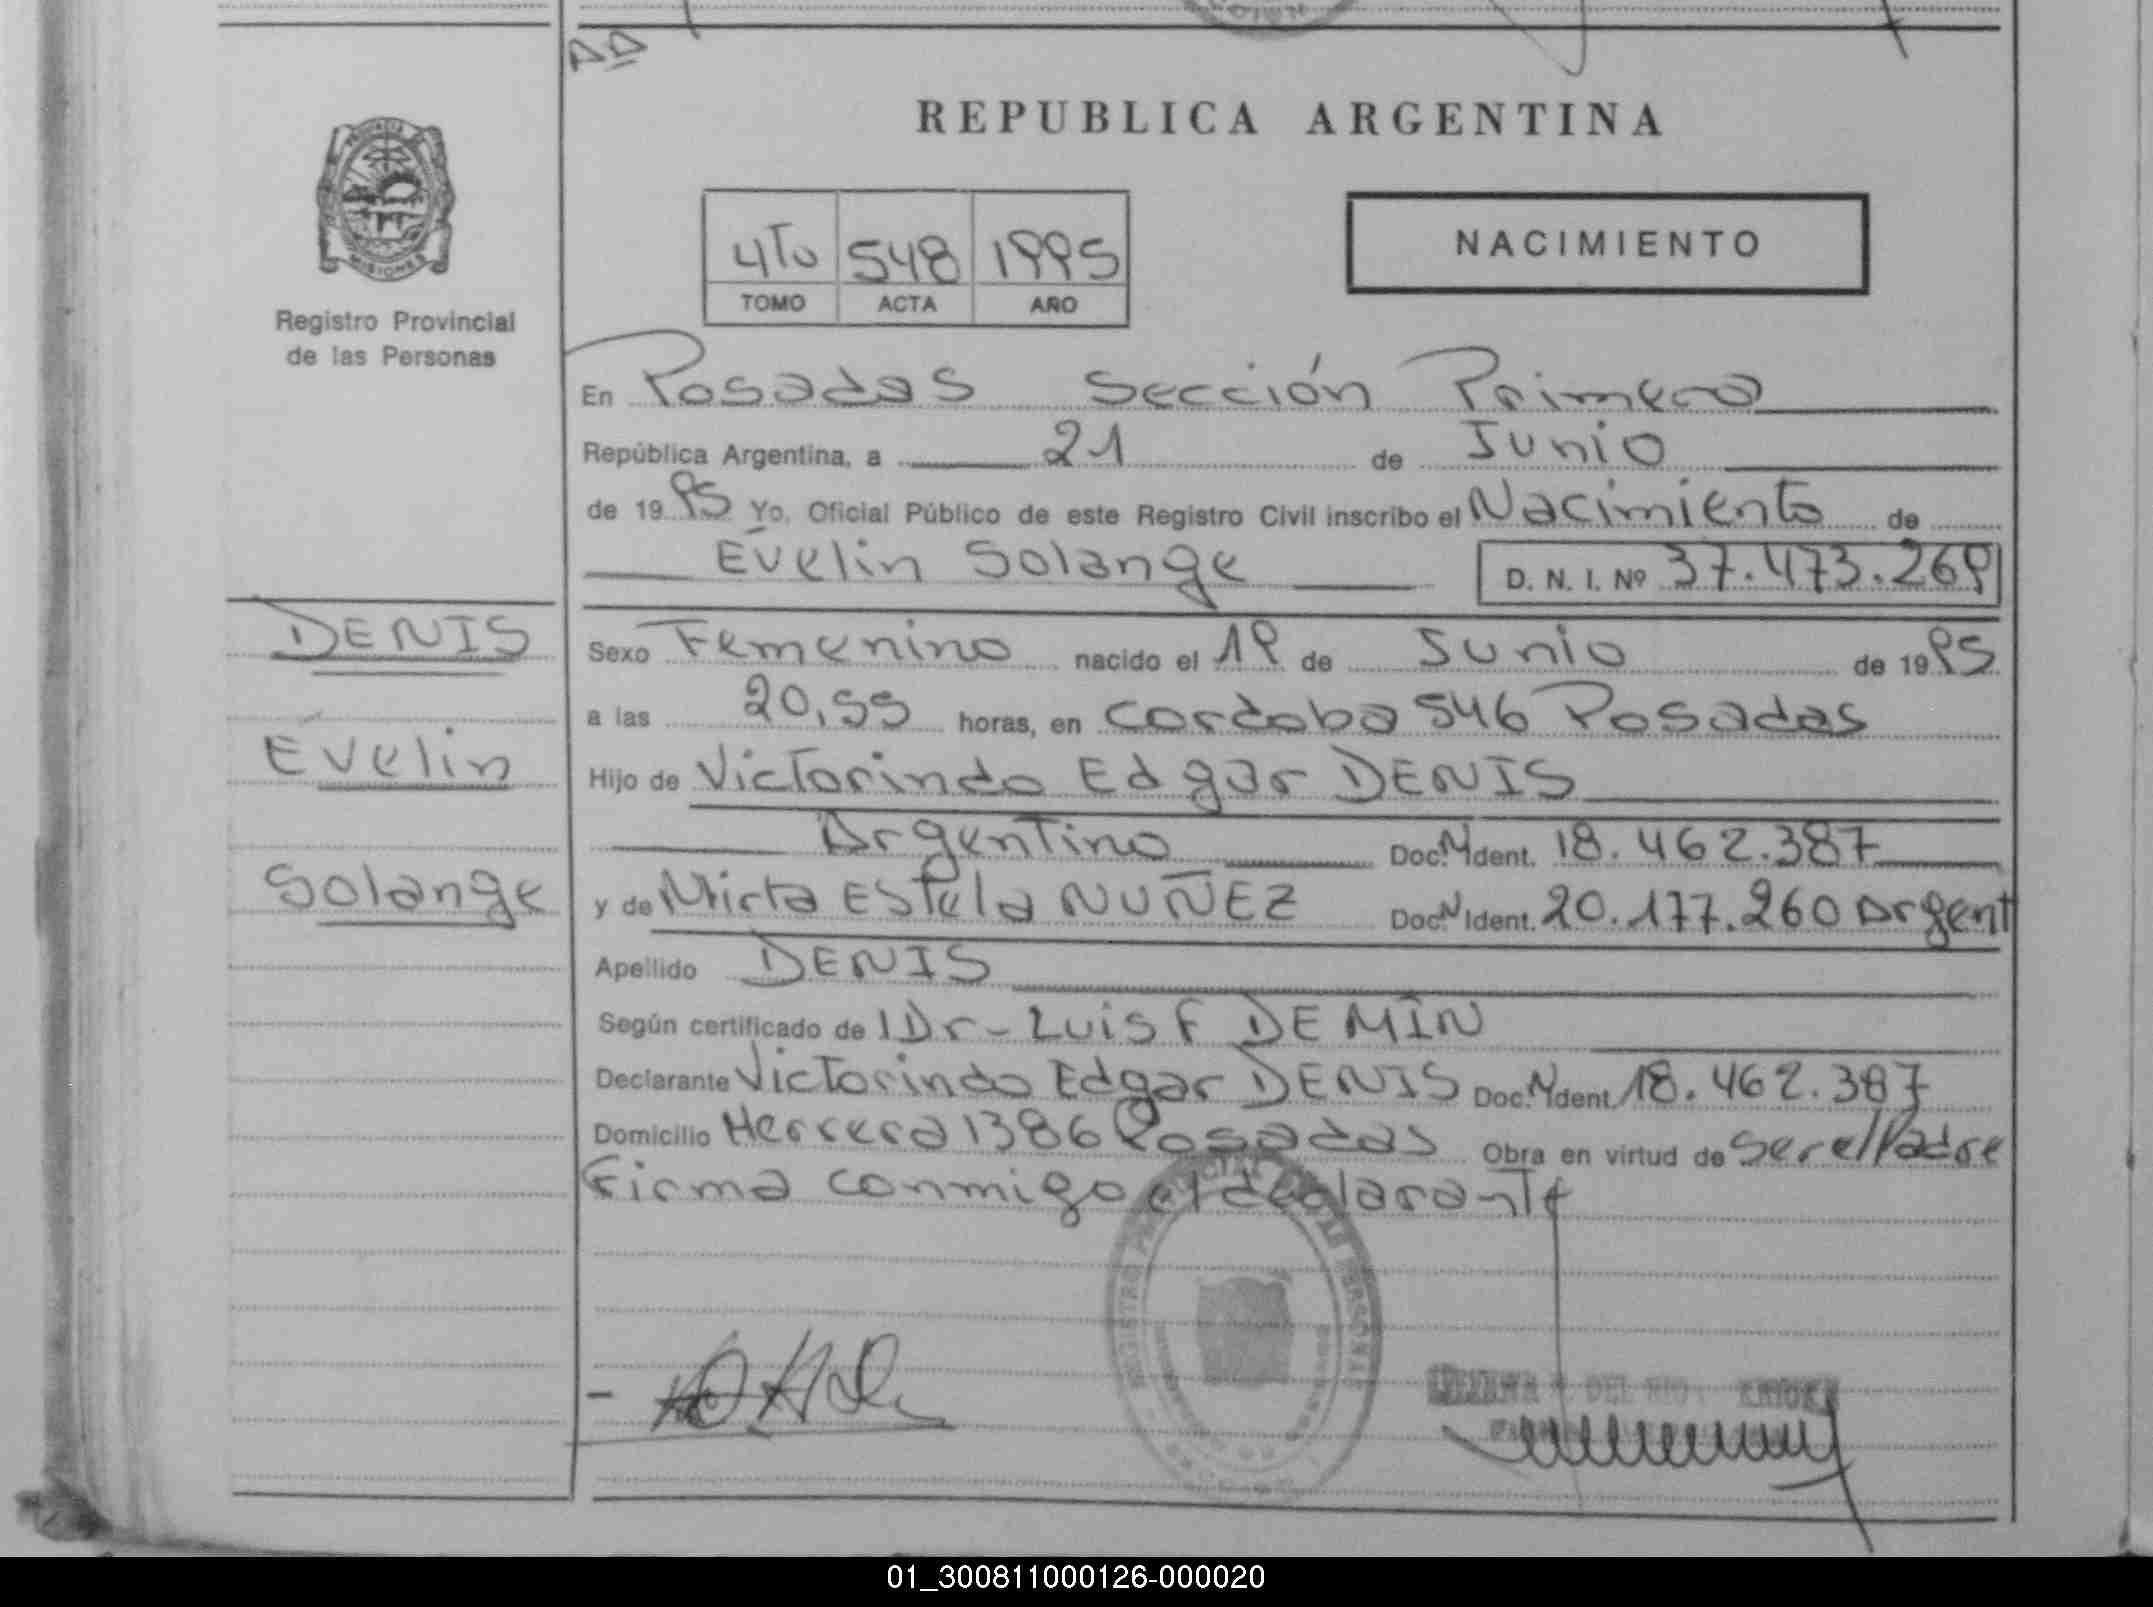 REPUBLICA ARGENTINA
4To 548 1995
TOMO ACTA AÑO
NACIMIENTO
PROVINCIA
MISIONES
Registro Provincial
de las Personas
En Posadas Sección Primera
República Argentina, a 21 de Junio
de 1995 Yo, Oficial Público de este Registro Civil inscribo el Nacimiento de
Evelin Solange D. N. I. Nº 37.473.269
DENIS
Evelin
Solange
Sexo Femenino nacido el 19 de Junio de 1995
a las 20,55 horas, en Cordoba 546 Posadas
Hijo de Victorindo Edgar DENIS
Argentino Doc. N Ident. 18.462.387
y de Mirta Estela NUÑEZ Doc. N Ident. 20.177.260 Argent
Apellido DENIS
Según certificado de l Dr- Luis F DEMIN
Declarante Victorindo Edgar DENIS Doc. N Ident. 18.462.387
Domicilio Herrera 1386 Posadas Obra en virtud de ser el Padre
Firma conmigo el declarante
DEL RIO
01_300811000126-000020